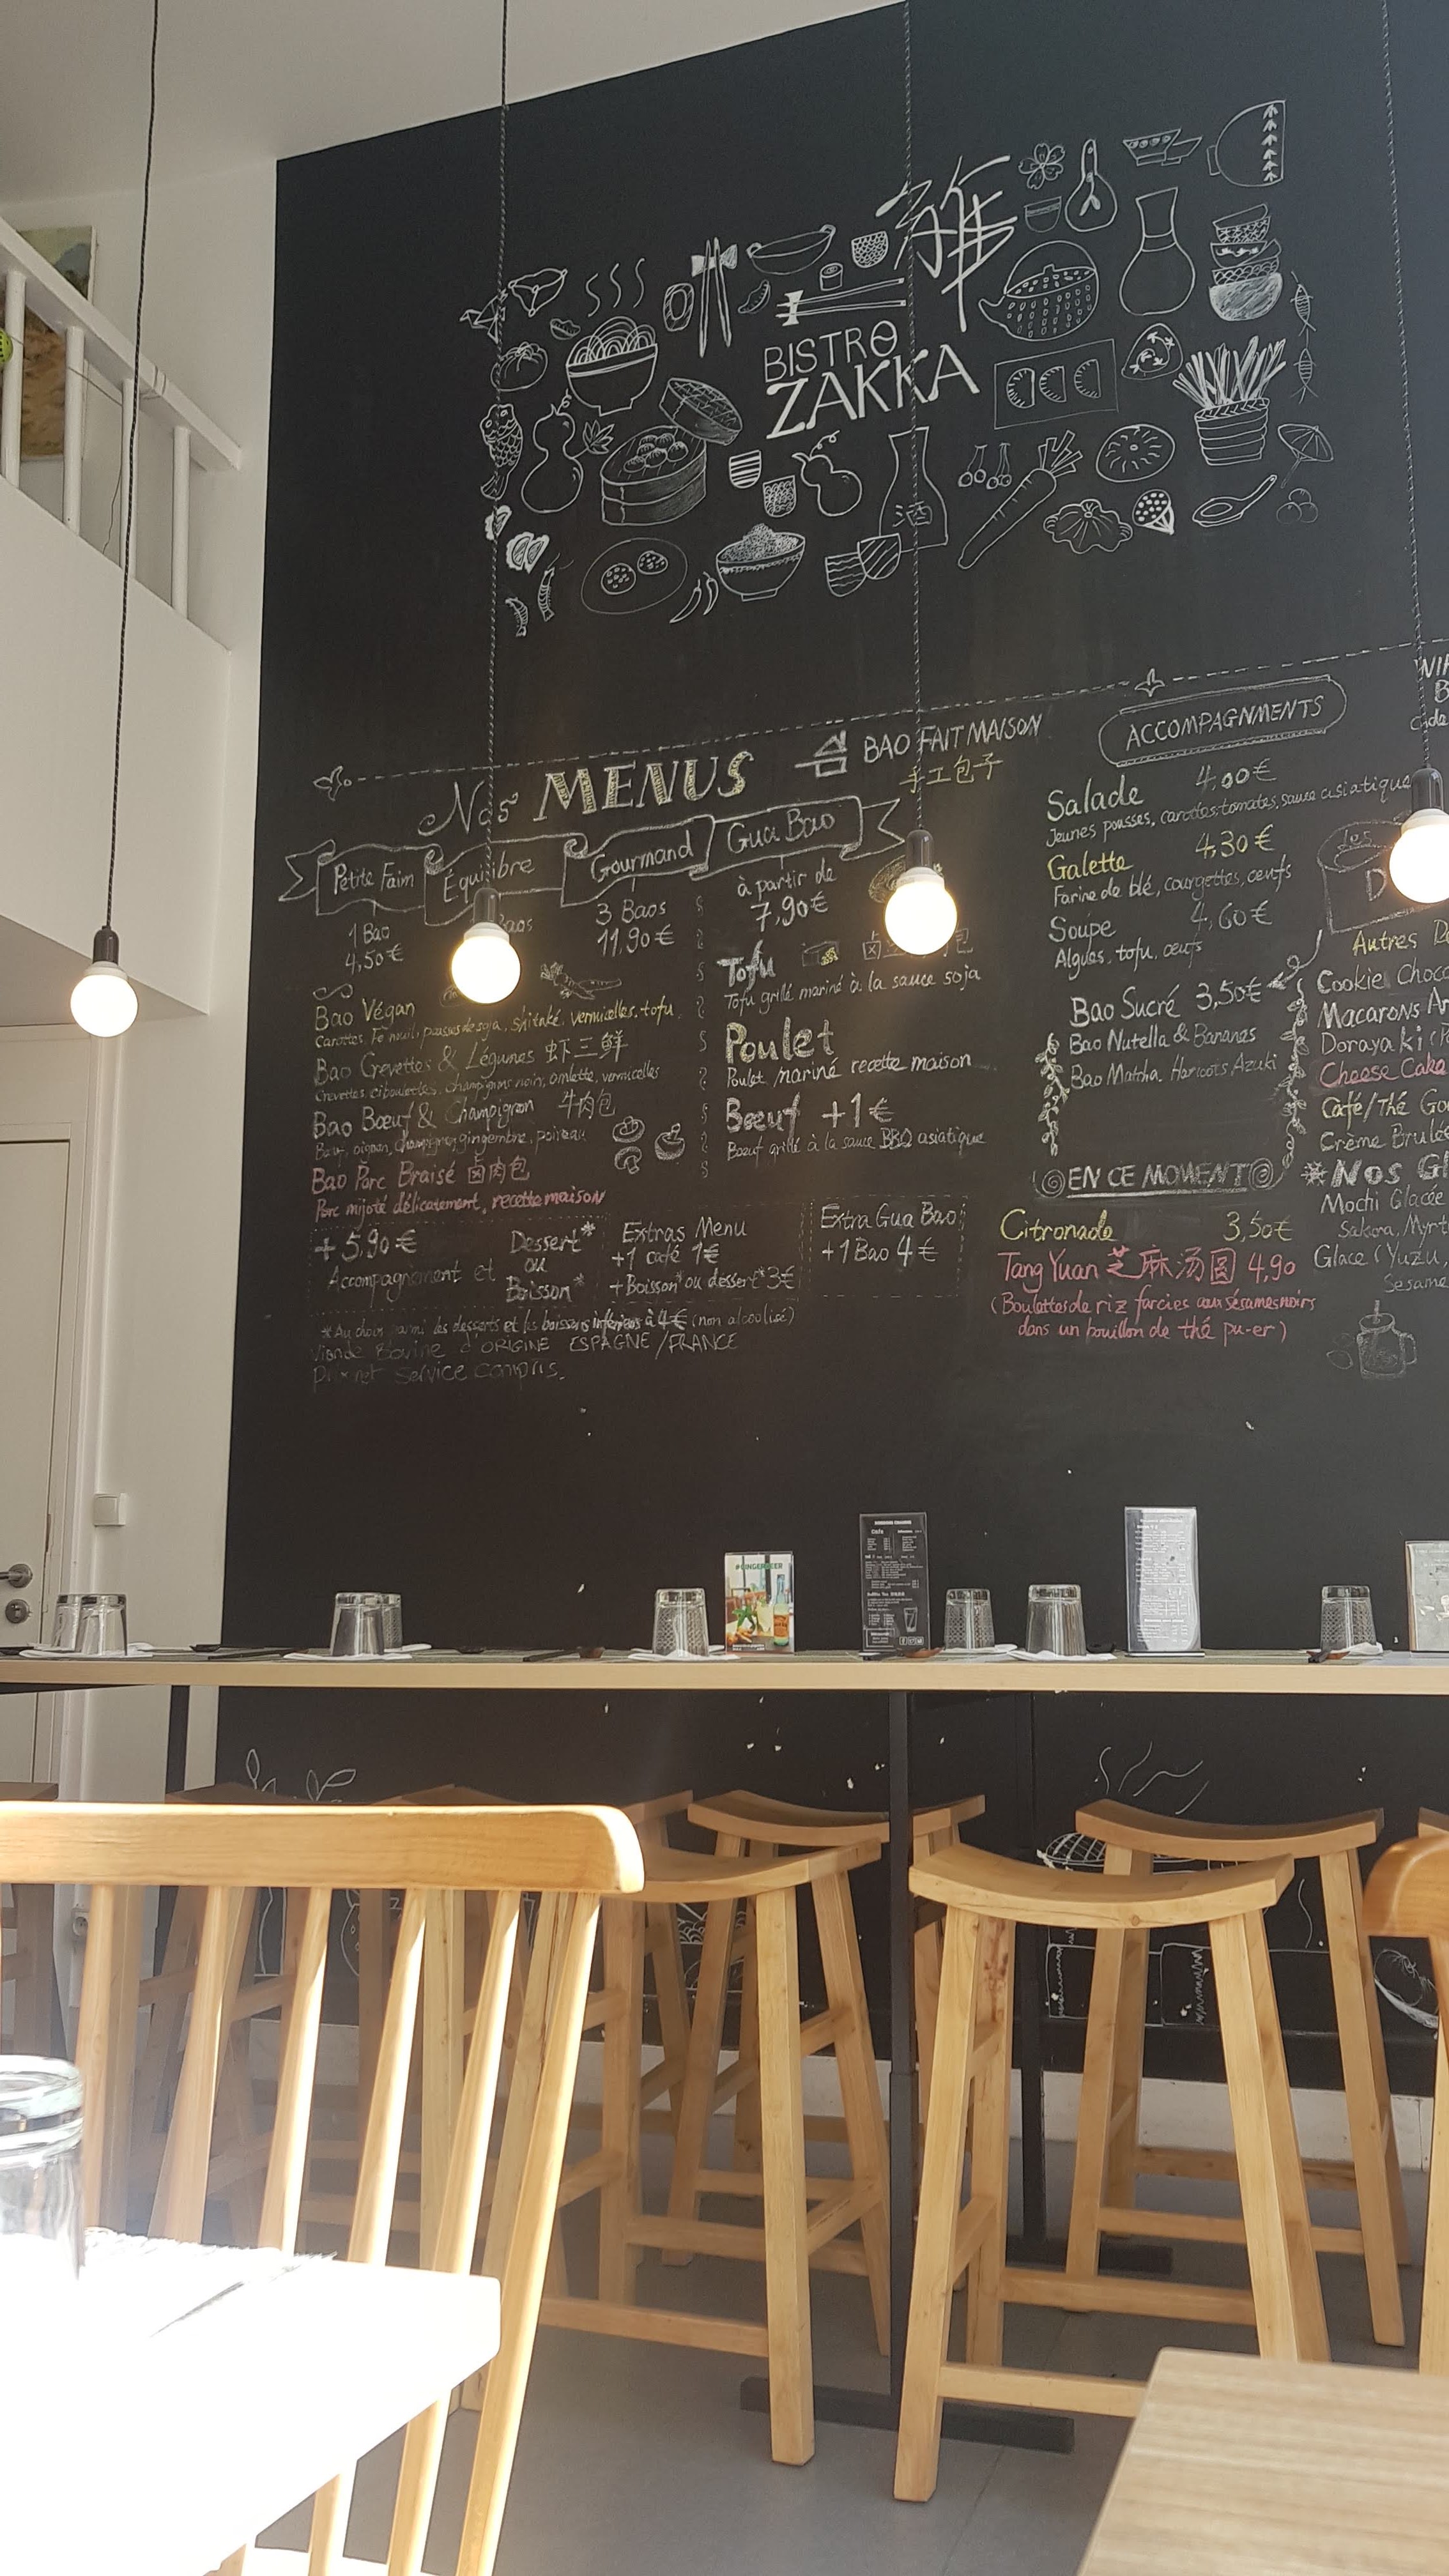 雑
BISTRO
ZAKKA
酒
Nos MENUS
BAO FAIT MAISON
手工包子
Petite Faim
Équilibre
Gourmand
Gua Bao
1 Bao
4,50€
Baos
3 Baos
11,90€
à partir de
7,90€
Bao Végan
Carottes, Fenouil, pousses de soja, shitaké, vermicelles, tofu
Bao Crevettes & Légumes 虾三鲜
Crevettes, ciboulettes, champignons noirs, omlette, vermicelles
Bao Bœuf & Champignon 牛肉包
Bœuf, oignon, champignon, gingembre, poireau
Bao Porc Braisé 卤肉包
Porc mijoté délicatement, recette maison
+ 5,90€
Accompagnement et
Dessert*
ou
Boisson*
Extras Menu
+1 café 1€
+Boisson* ou dessert* 3€
*Au choix parmi les desserts et les boissons inférieurs à 4€ (non alcoolisé)
Viande Bovine d'ORIGINE ESPAGNE/FRANCE
Prix net Service compris.
Tofu
Tofu grillé mariné à la sauce soja
Poulet
Poulet mariné recette maison
Bœuf +1€
Bœuf grillé à la sauce BBQ asiatique
Extra Gua Bao
+1 Bao 4€
ACCOMPAGNMENTS
Salade 4,00€
Jeunes pousses, carottes, tomates, sauce asiatique
Galette 4,30€
Farine de blé, courgettes, œufs
Soupe 4,60€
Algues, tofu, œufs
Bao Sucré 3,50€
Bao Nutella & Bananes
Bao Matcha, Haricots Azuki
EN CE MOMENT
Citronade 3,50€
Tang Yuan 芝麻汤圆 4,90
(Boulettes de riz farcies aux sésames noirs
dans un bouillon de thé pu-er)
Autres D
Cookie Choco
Macarons A
Dorayaki
Cheese Cake
Café/Thé Go
Crème Brulée
*Nos Gl
Mochi Glacée
Sakura, Myrt
Glace (Yuzu,
Sesame
#GINGERBEER